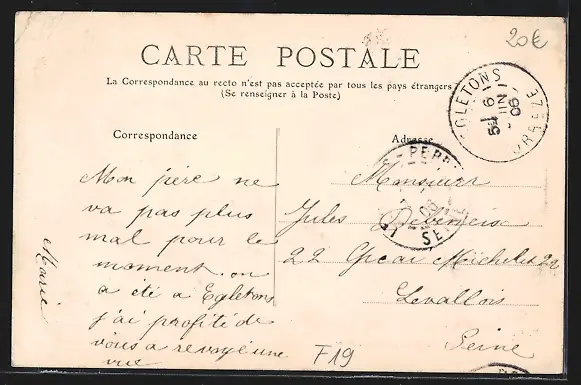 20€
CARTE POSTALE
La Correspondance au recto n'est pas acceptée par tous les pays étrangers
(Se renseigner à la Poste)
EGLETONS
CORREZE
Correspondance
Adresse
Mon père ne
va pas plus
mal pour le
moment. on
a été a Egletons
j'ai profité de
vous a revoye une
vue
Marie
Monsieur
Jules
22 Quai Michelet 22
Levallois
Seine
F19